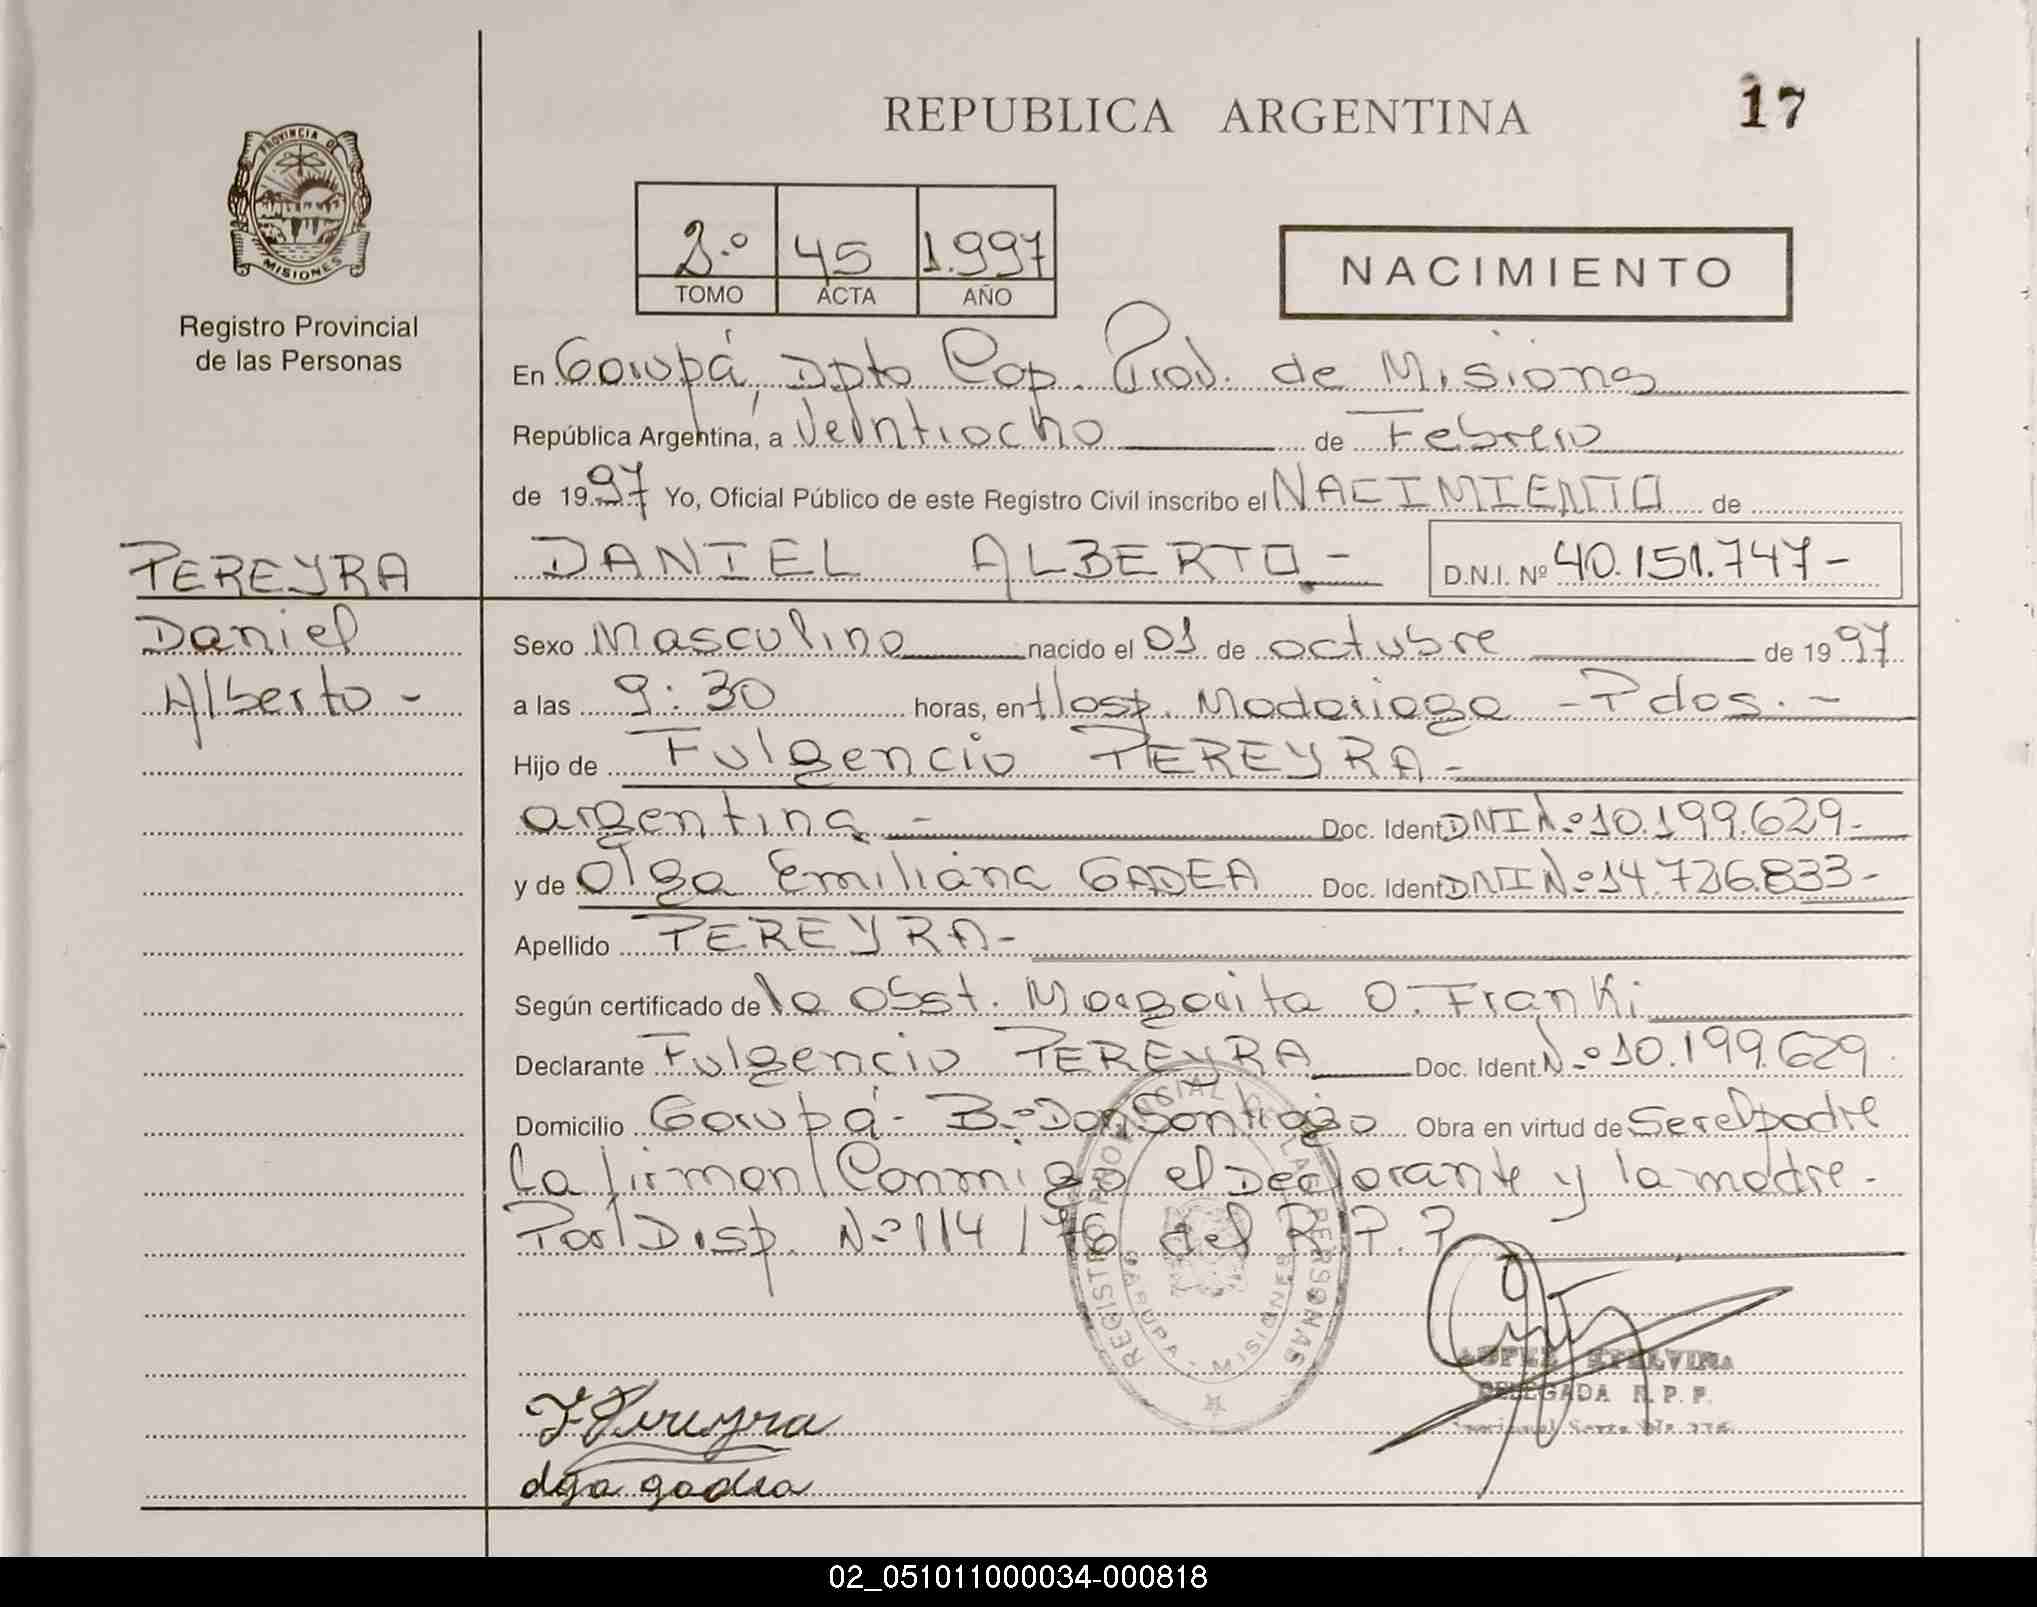 REPUBLICA ARGENTINA
17
PROVINCIA DE
MISIONES
Registro Provincial
de las Personas
2.º 45 1.997
TOMO ACTA AÑO
NACIMIENTO
En Garupá, Dpto Cap. Prov. de Misiones
República Argentina, a Veintiocho de Febrero
de 1997 Yo, Oficial Público de este Registro Civil inscribo el NACIMIENTO de
PEREYRA
DANIEL ALBERTO - D.N.I. Nº 40.151.747-
Daniel
Alberto -
Sexo Masculino nacido el 01 de octubre de 1997
a las 9:30 horas, en Hosp. Madariaga - Pdas. -
Hijo de Fulgencio PEREYRA -
argentina - Doc. Ident DNI Nº 10.199.629-
y de Olga Emiliana GADEA Doc. Ident DNI Nº 14.726.833-
Apellido PEREYRA-
Según certificado de la Obst. Margarita O. Franki
Declarante Fulgencio PEREYRA Doc. Ident Nº 10.199.629
Domicilio Garupá - Bº Don Santiago Obra en virtud de Ser el padre
La firman Conmigo el Declarante y la madre.
Por Disp. Nº 114/76 del R.P.P
REGISTRO PROVINCIAL DE LAS PERSONAS
GARUPA - MISIONES
LOPEZ ETELVINA
DELEGADA R.P.P.
F Pereyra
Olga gadea
02_051011000034-000818